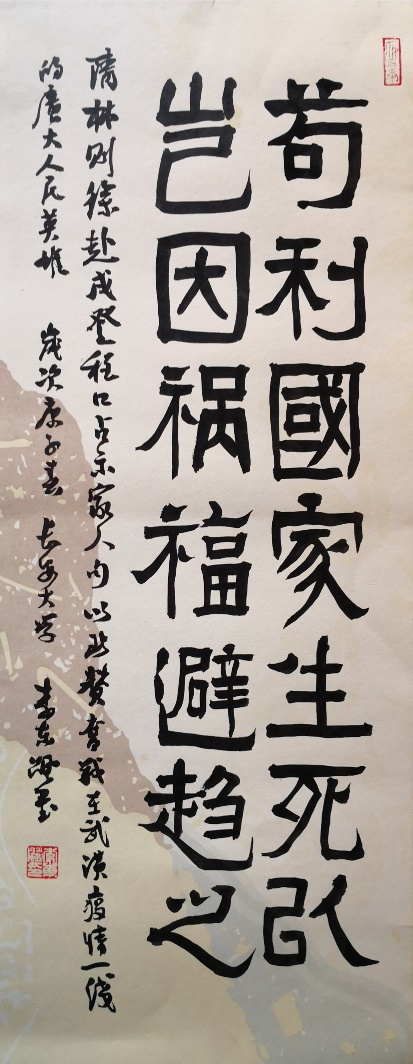 苟利國家生死以
岂因祸福避趋之
清林则徐赴戍登程口占示家人句以此赞奋战在武汉疫情一线
的廣大人民英雄 岁次庚子春 长安大学